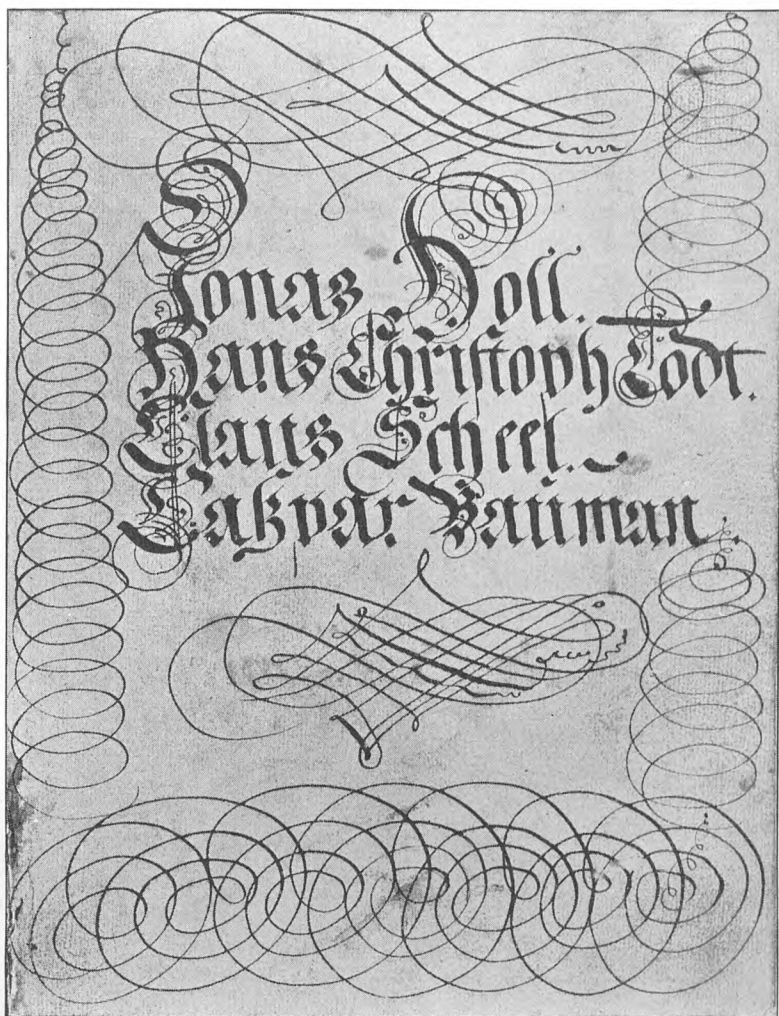 Jonas Holl.
Hans Christoph Todt.
Claus Scheel.
Caßpar Bauman.